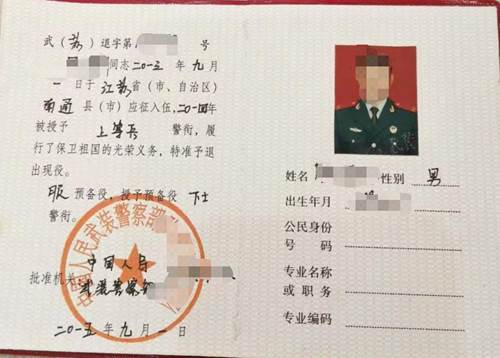 武（苏）退字第 号
同志二〇一三年九月
一日于江苏省（市、自治区）
南通县（市）应征入伍，二〇一四年
被授予上等兵警衔，履
行了保卫祖国的光荣义务，特准予退
出现役。
服预备役，授予预备役下士
警衔。
中国人民武装警察部
批准机关 中国人民
武装警察
二〇一五年九月一日
姓名 性别 男
出生年月
公民身份
号码
专业名称
或职务
专业编码